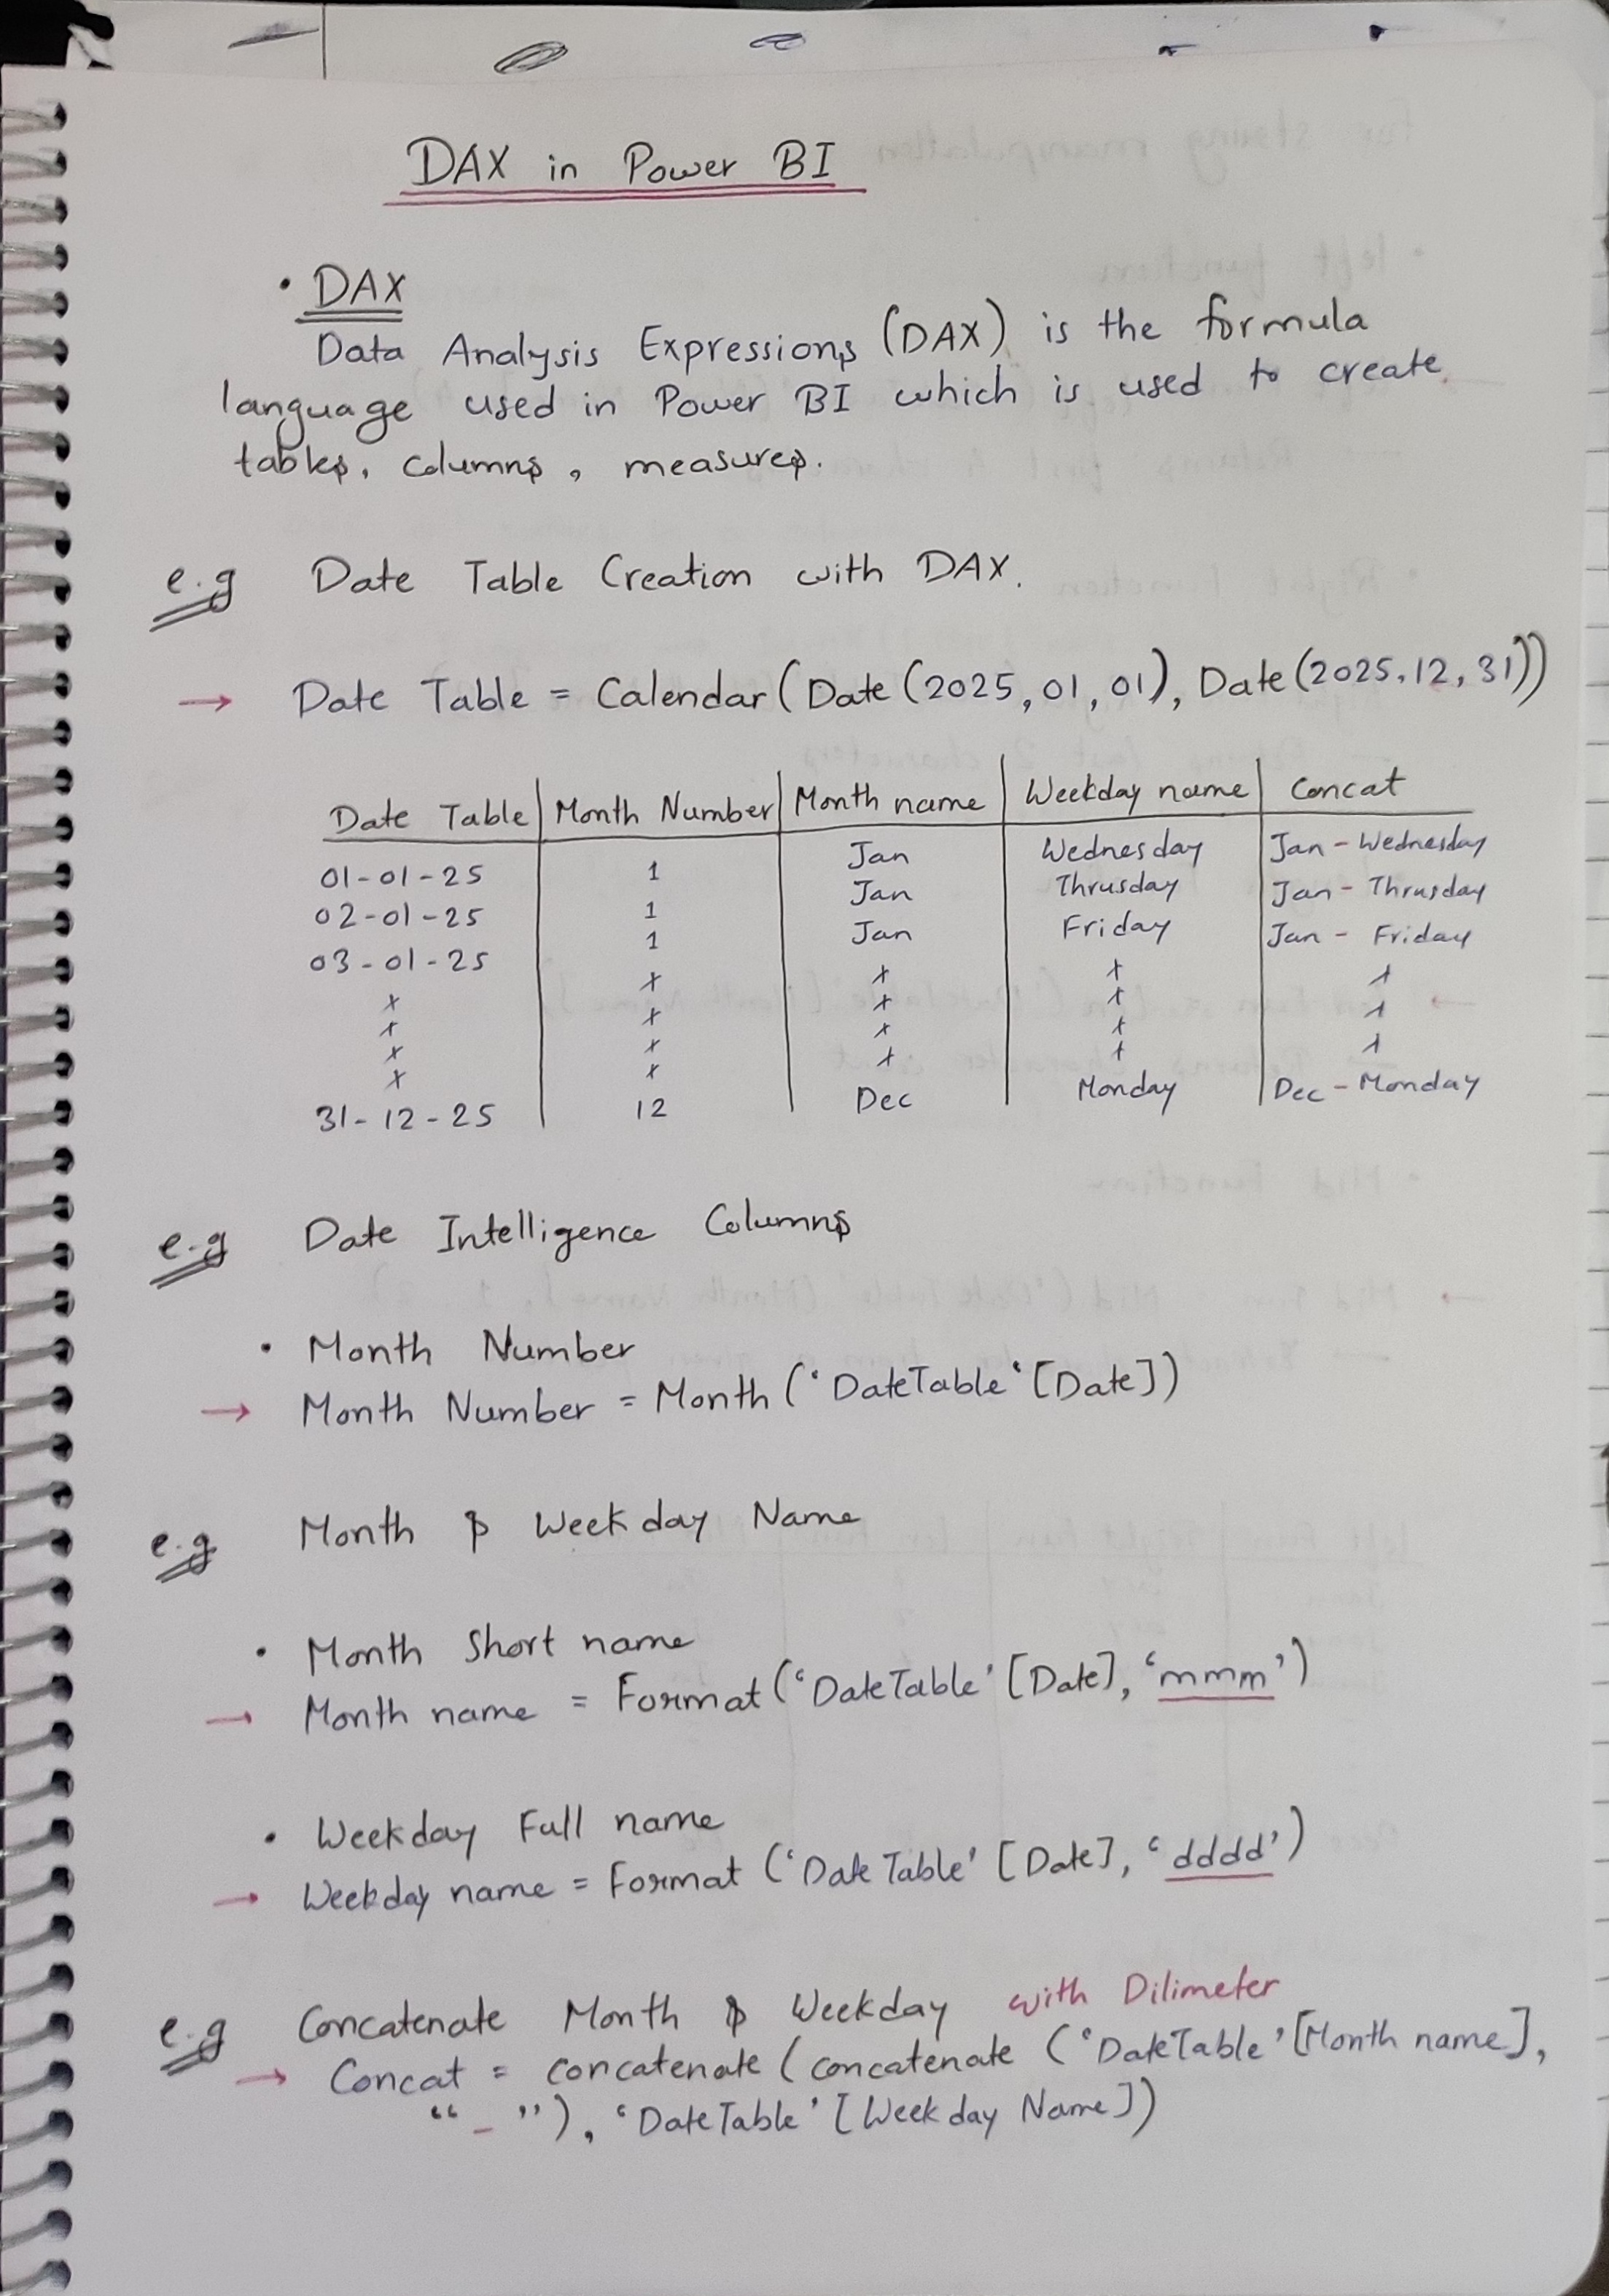 DAX in Power BI
• DAX
Data Analysis Expressions (DAX) is the formula
language used in Power BI which is used to create
tables, columns, measures.
e.g Date Table Creation with DAX.
→ Date Table = Calendar (Date (2025, 01, 01), Date (2025, 12, 31))
Date Table | Month Number | Month name | Weekday name | Concat
01-01-25 | 1 | Jan | Wednesday | Jan - Wednesday
02-01-25 | 1 | Jan | Thrusday | Jan - Thrusday
03-01-25 | 1 | Jan | Friday | Jan - Friday
x | x | x | x | x
x | x | x | x | x
x | x | x | x | x
x | x | x | x
31-12-25 | 12 | Dec | Monday | Dec - Monday
e.g Date Intelligence Columns
• Month Number
→ Month Number = Month ('DateTable'[Date])
e.g Month & Weekday Name
• Month Short name
→ Month name = Format ('DateTable' [Date], 'mmm')
• Weekday Full name
→ Weekday name = Format ('Date Table' [Date], 'dddd')
e.g Concatenate Month & Weekday with Dilimeter
→ Concat = concatenate (concatenate ('DateTable' [Month name],
“-”), 'DateTable' [Weekday Name])